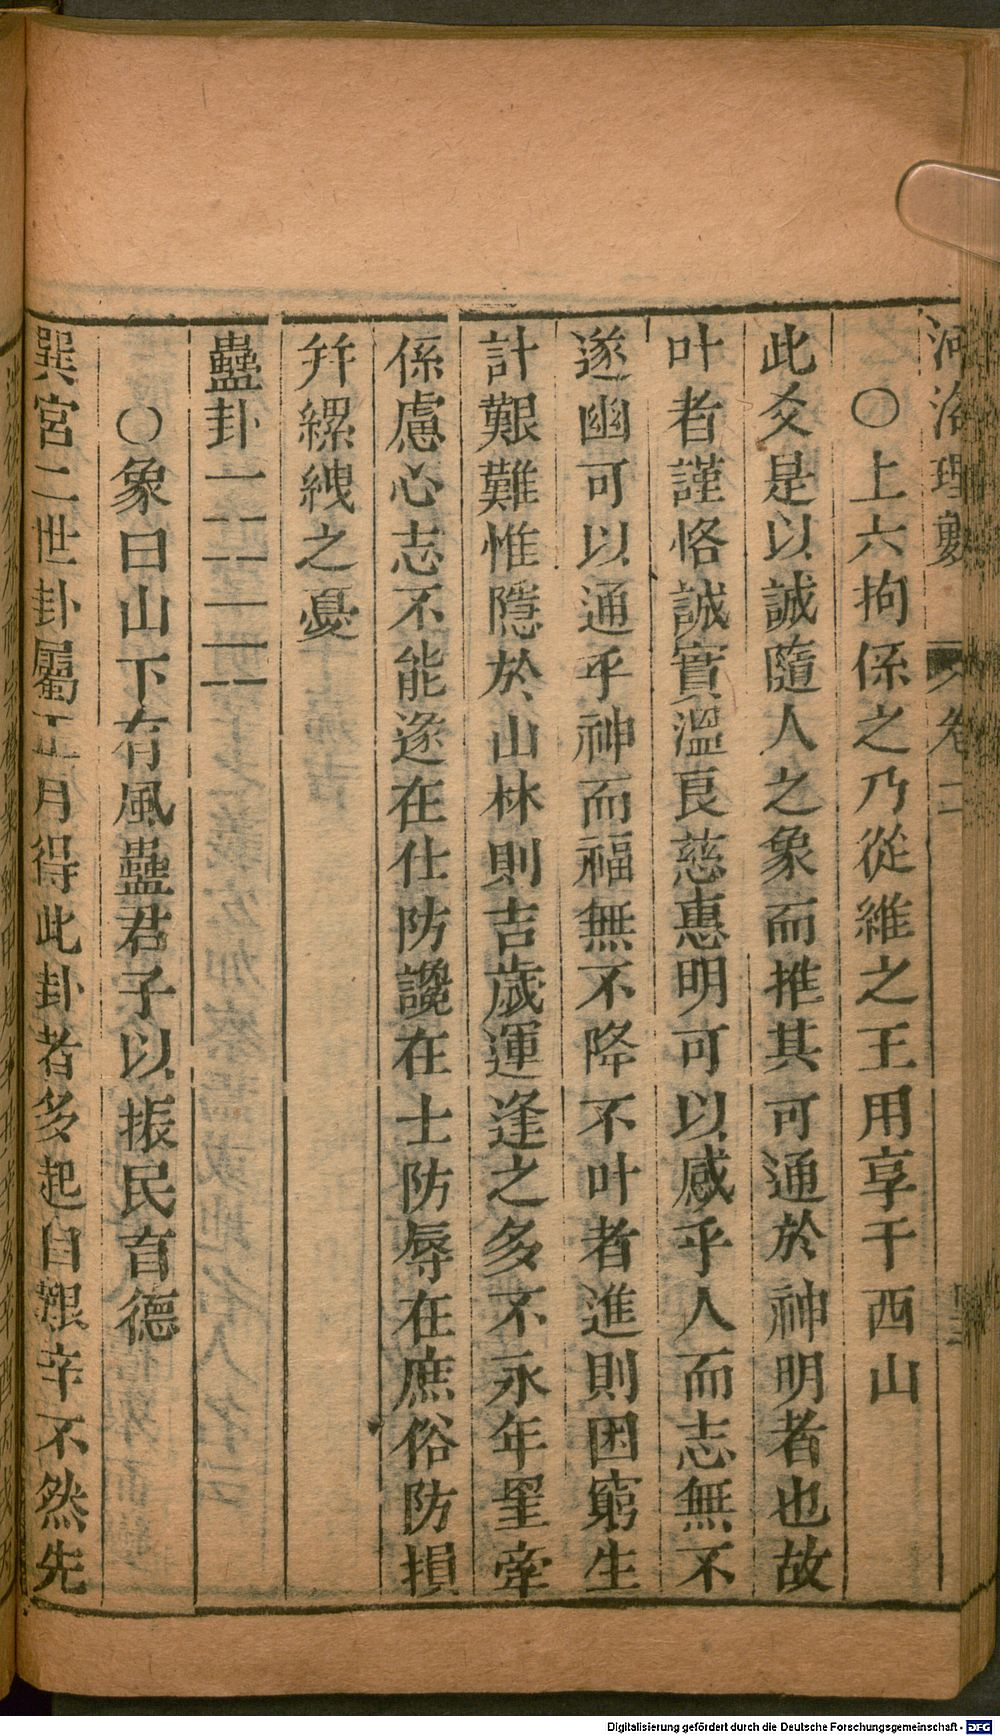 河洛理數 卷二
○上六拘係之乃從維之王用享于西山
此爻是以誠隨人之象而推其可通於神明者也故
叶者謹恪誠實溫良慈惠明可以感乎人而志無不
遂幽可以通乎神而福無不降不叶者進則困窮生
計艱難惟隱於山林則吉歲運逢之多不永年罣牽
係慮心志不能遂在仕防讒在士防辱在庶俗防損
并縲絏之憂
蠱卦
○象曰山下有風蠱君子以振民育德
巽宮二世卦屬正月得此卦者多起自艱辛不然先
Digitalisierung gefördert durch die Deutsche Forschungsgemeinschaft - DFG